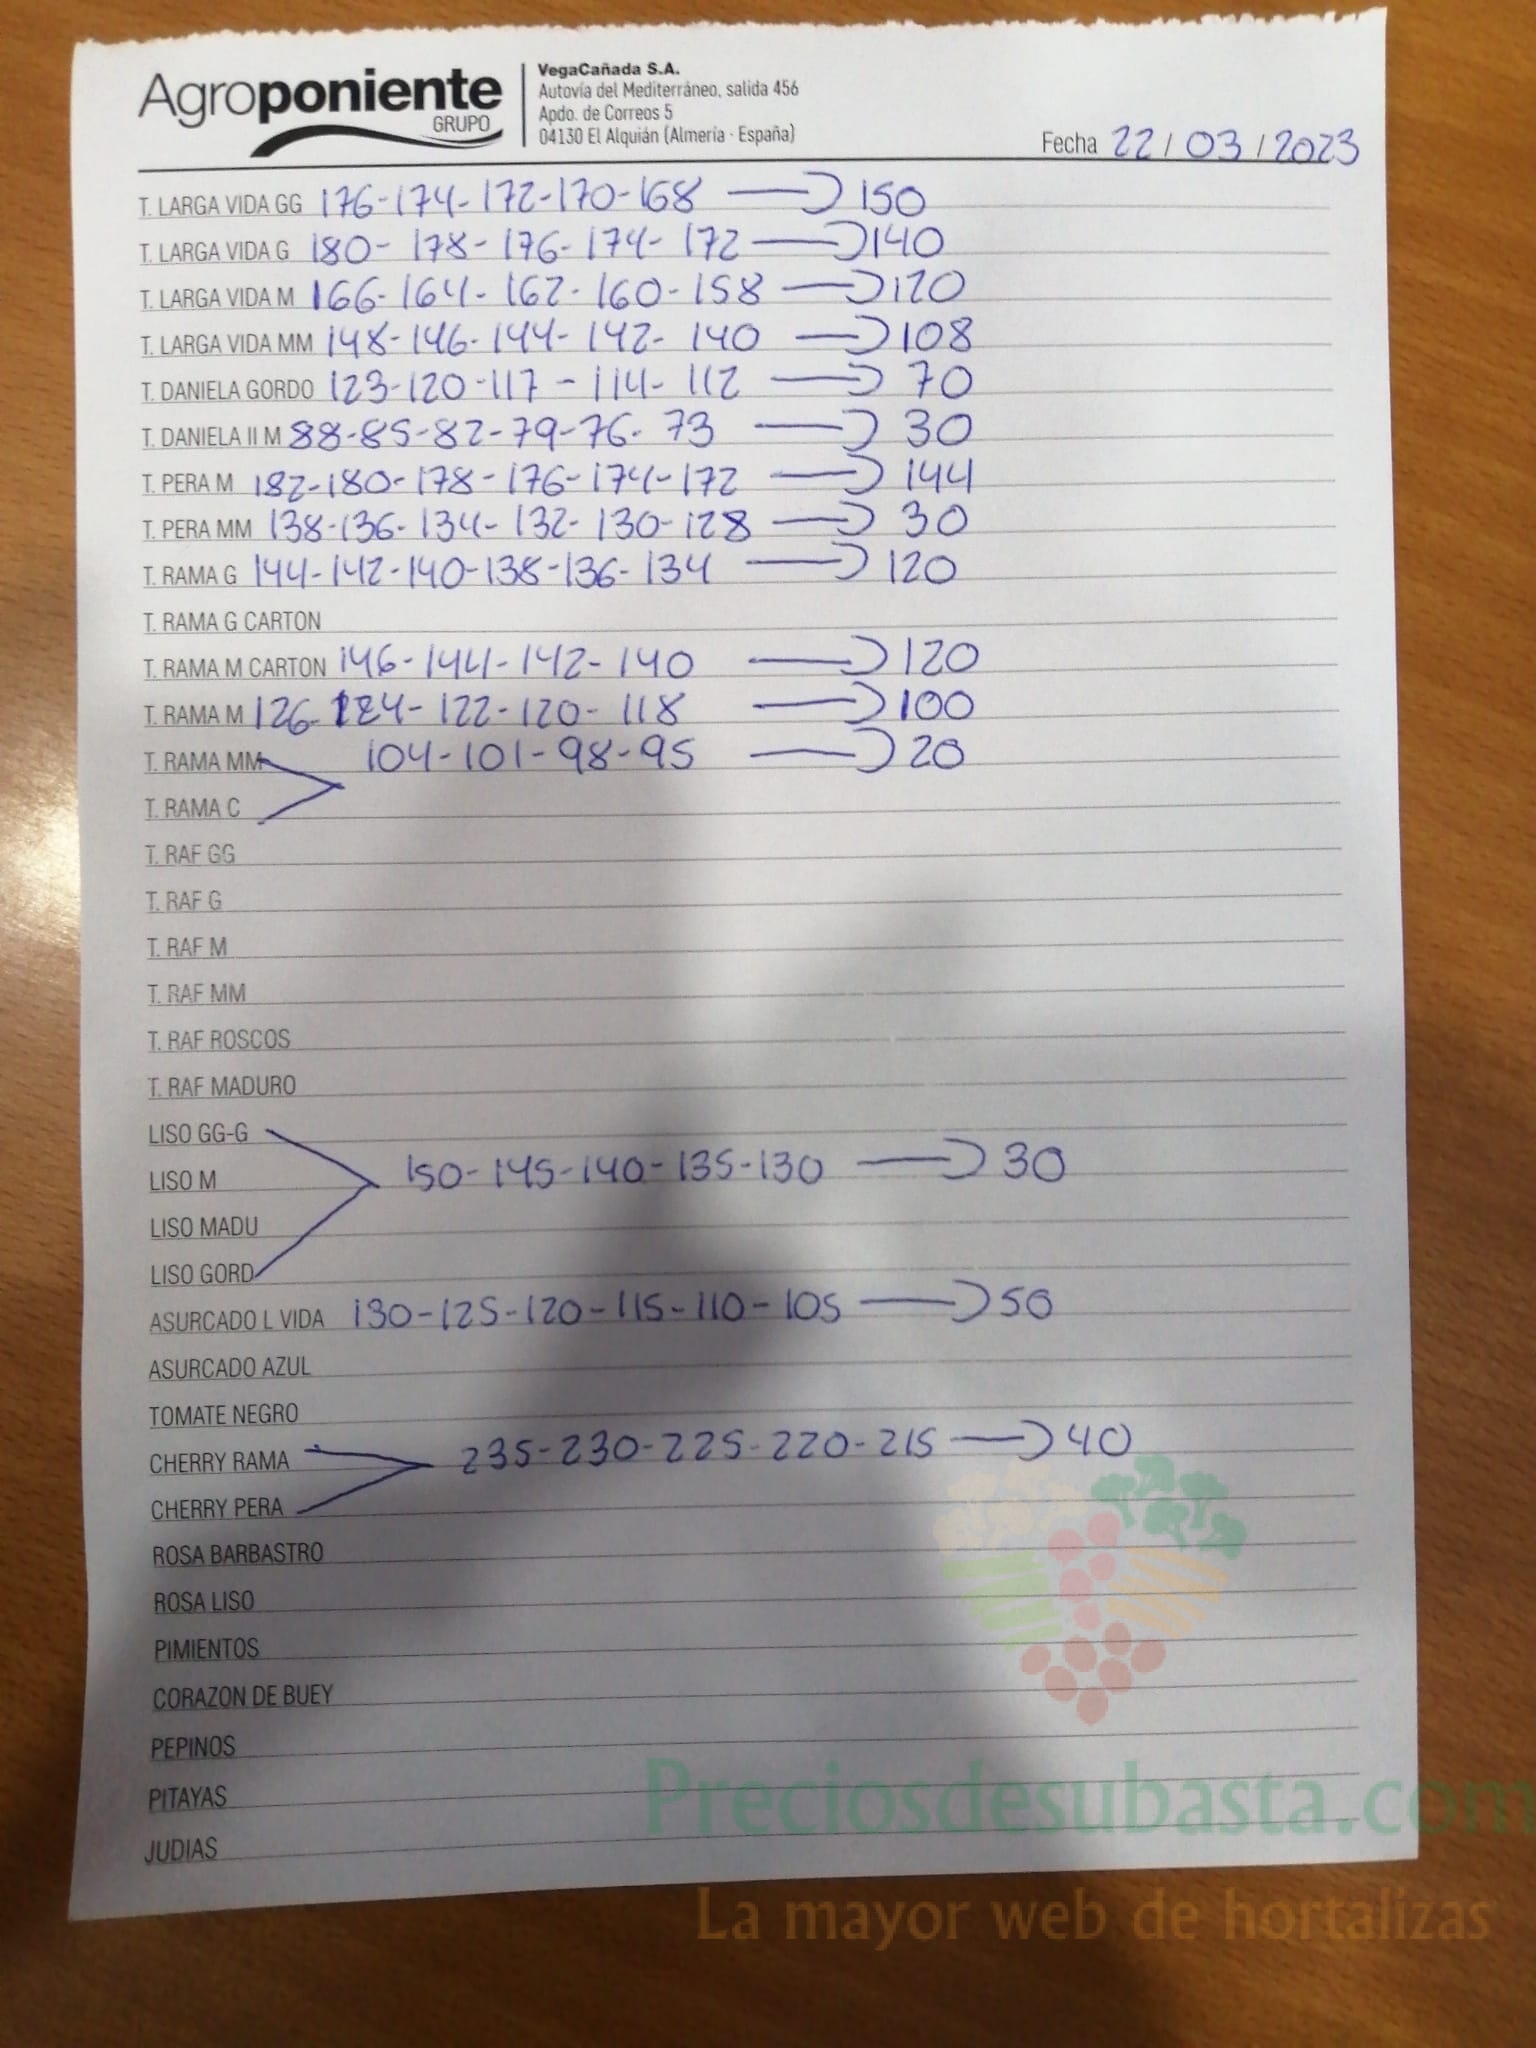 Agroponiente
GRUPO
VegaCañada S.A.
Autovía del Mediterráneo, salida 456
Apdo. de Correos 5
04130 El Alquián (Almería - España)
Fecha 22/03/2023
T. LARGA VIDA GG 176-174-172-170-168 150
T. LARGA VIDA G 180-178-176-174-172 140
T. LARGA VIDA M 166-164-162-160-158 120
T. LARGA VIDA MM 148-146-144-142-140 108
T. DANIELA GORDO 123-120-117-114-112 70
T. DANIELA II M 88-85-82-79-76-73 30
T. PERA M 182-180-178-176-174-172 144
T. PERA MM 138-136-134-132-130-128 30
T. RAMA G 144-142-140-138-136-134 120
T. RAMA G CARTON
T. RAMA M CARTON 146-144-142-140 120
T. RAMA M 126-124-122-120-118 100
T. RAMA MM 104-101-98-95 20
T. RAMA C
T. RAF GG
T. RAF G
T. RAF M
T. RAF MM
T. RAF ROSCOS
T. RAF MADURO
LISO GG-G
LISO M 150-145-140-135-130 30
LISO MADU
LISO GORD
ASURCADO L VIDA 130-125-120-115-110-105 50
ASURCADO AZUL
TOMATE NEGRO
CHERRY RAMA 235-230-225-220-215 40
CHERRY PERA
ROSA BARBASTRO
ROSA LISO
PIMIENTOS
CORAZON DE BUEY
PEPINOS
PITAYAS
JUDIAS
Preciosdesubasta.com
La mayor web de hortalizas